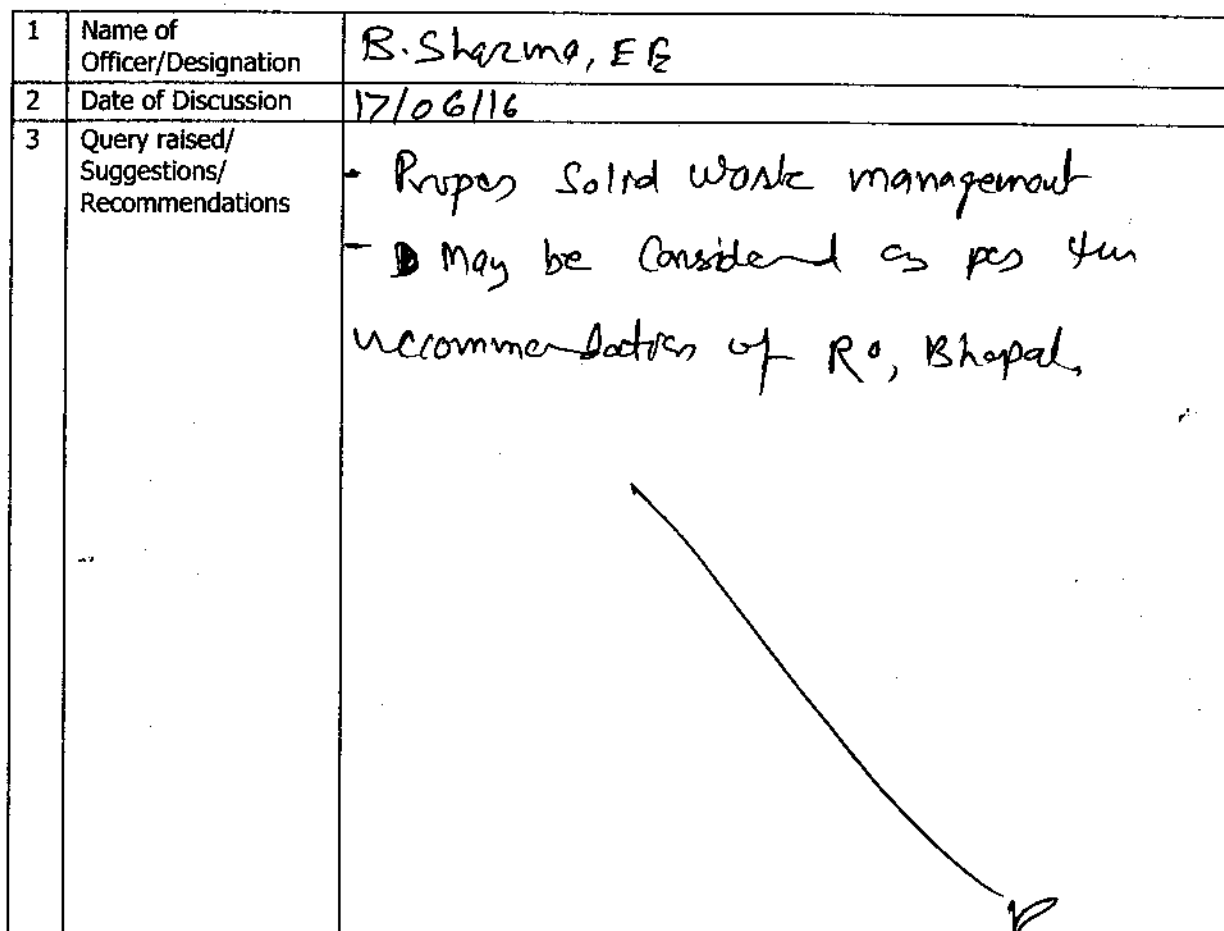 1 Name of Officer/Designation B. Sharma, EE
2 Date of Discussion 17/06/16
3 Query raised/ Suggestions/ Recommendations
- Proper Solid Waste management
- May be Considered as per the
recommendation of RO, Bhopal.